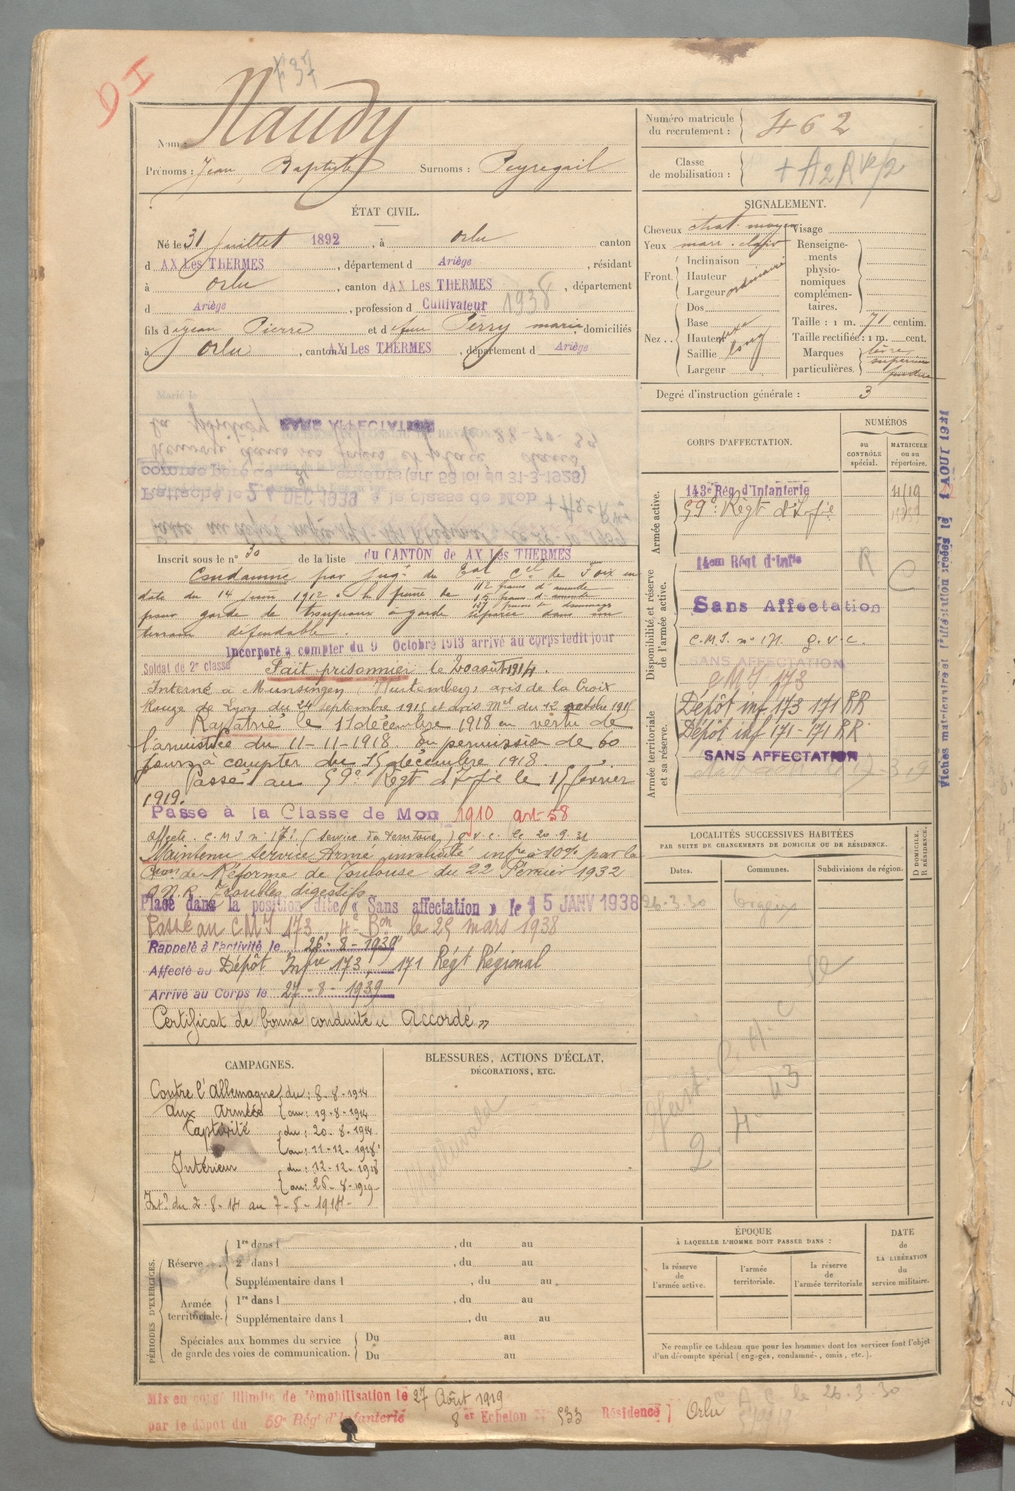 F 37
Nom : Naudy
Prénoms : Jean Baptiste Surnoms : Peyregail
Numéro matricule du recrutement : 462
Classe de mobilisation :
ÉTAT CIVIL.
Né le 31 Juillet 1892, à Orlu canton
d AX Les THERMES, département d Ariège, résidant
à Orlu, canton d AX Les THERMES, département
d Ariège, profession d Cultivateur 1938
fils d Jean Pierre et d feu Perry marie domiciliés
à Orlu, canton d AX Les THERMES, département d Ariège
SIGNALEMENT.
Cheveux chat. moyen Visage
Yeux marr.
Front. Inclinaison
Hauteur
Largeur ordinaire
Nez.. Dos
Base
Hauteur
Saillie long
Largeur
Renseignements physionomiques complémentaires.
Taille : 1 m. 71 centim.
Taille rectifiée : 1 m. cent.
Marques particulières. lèvre supérieure
Degré d'instruction générale : 3
Marié le
SANS AFFECTATION
(art. 58 loi du 31-3-1928)
Rattaché le 2 DEC 1939 à la classe de Mob
Inscrit sous le n° 30 de la liste du CANTON de AX Les THERMES
Condamné par Jugt du Bal Cel de Foix en
date du 14 Juin 1912 à
pour garde de troupeaux à garde séparée dans un
terrain défendable.
Incorporé à compter du 9 Octobre 1913 arrivé au corps ledit jour
Soldat de 2e classe Fait prisonnier le 20 août 1914.
Interné à Munsingen (Wurtemberg) avis de la Croix
Rouge de Lyon du 24 septembre 1915
Rapatrié le 11 décembre 1918 en vertu de
l'armistice du 11-11-1918 en permission de 60
jours à compter du 15 décembre 1918.
Passé au 59e Régt d'Infie le 15 février
1919.
Passé à la Classe de Mon 1910 art-58
Affecté C.M.I n° 171 (service du territoire) g.v.c. le 20.9.31
Maintenu Service Armé invalidité infre à 10% par la
Cion de Réforme de Toulouse du 22 Février 1932
P.N.R. Troubles digestifs
Placé dans la position dite « Sans affectation » le 15 JANV 1938
Passé au CMI 173, 4e Bon le 25 mars 1938
Rappelé à l'activité le 26-8-1939
Affecté au Dépôt Infre 173, 171 Régt Régional
Arrivé au Corps le 27-8-1939
Certificat de bonne conduite « Accordé »
CORPS D'AFFECTATION.
NUMÉROS
au CONTRÔLE spécial.
MATRICULE ou au répertoire.
Armée active.
143e Rég d'Infanterie 4119
59e Régt d'Infie
Disponibilité et réserve de l'armée active.
14em Régt d'Infie
R
C
Sans Affectation
C.M.I. n° 171. g.v.c.
SANS AFFECTATION
CMI 173
Armée territoriale et sa réserve.
Dépôt inf 173 171 RR
Dépôt inf 171-171 RR
SANS AFFECTATION
LOCALITÉS SUCCESSIVES HABITÉES
PAR SUITE DE CHANGEMENTS DE DOMICILE OU DE RÉSIDENCE.
Dates. Communes. Subdivisions de région. D DOMICILE. R RÉSIDENCE.
26-3-30 Orgeix
CAMPAGNES.
Contre l'Allemagne du : 8-8-1914
aux Armées au : 19-8-1914
Captivité du : 20-8-1914
au : 11-12-1918
Intérieur du : 12-12-1918
au : 26-8-1919
Intr du 2-8-14 au 7-8-1914
BLESSURES, ACTIONS D'ÉCLAT,
DÉCORATIONS, ETC.
PÉRIODES D'EXERCICES.
Réserve. 1re dans l , du au
2e dans l , du au
Supplémentaire dans l , du au
Armée territoriale. 1re dans l , du au
Supplémentaire dans l , du au
Spéciales aux hommes du service de garde des voies de communication. Du au
Du au
ÉPOQUE
À LAQUELLE L'HOMME DOIT PASSER DANS :
la réserve de l'armée active. l'armée territoriale. la réserve de l'armée territoriale
DATE de LA LIBÉRATION du service militaire.
Ne remplir ce tableau que pour les hommes dont les services font l'objet
d'un décompte spécial (engagés, condamnés, omis, etc.).
Mis en congé illimité de démobilisation le 27 Août 1919
par le dépôt du 59e Régt d'Infanterie 8e Echelon N° 533 Résidence Orlu
le 26-3-30